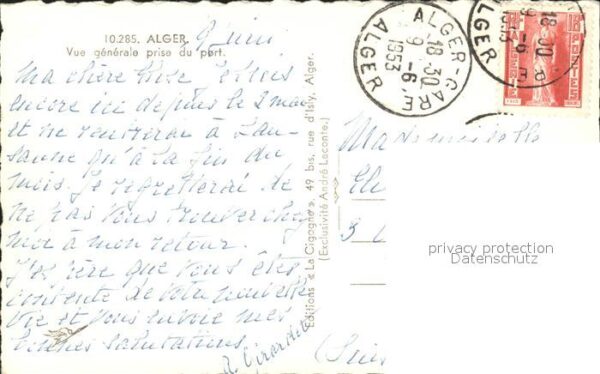 10.285. ALGER.
Vue générale prise du port.
9 Juin
Ma chère Je suis
encore ici depuis le 2 mai
et ne rentrerai à Lau-
sanne qu'à la fin du
mois. Je regretterai de
ne pas vous trouver chez
moi à mon retour.
J'espère que vous êtes
contente de votre nouvelle
vie et vous envoie mes
bonnes salutations.
Editions « La Cigogne », 49 bis, rue d'Isly, Alger.
(Exclusivité André Leconte.)
ALGER-GARE
18.30
9-6
1953
ALGER
18.30
9-6
ALGER
Mademoiselle
3
privacy protection
Datenschutz